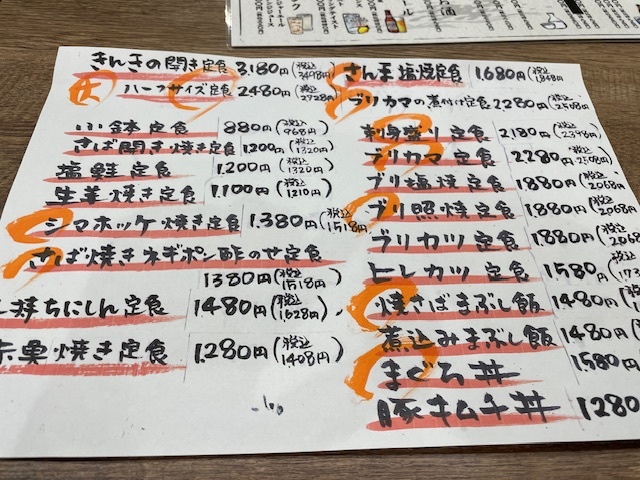 きんきの開き定食 3,180円(税込3498円)
大 ハーフサイズ定食 2480円(税込2728円)
小鉢定食 880円(税込968円)
さば開き焼き定食 1,200円(税込1320円)
塩鮭定食 1,200円(税込1320円)
生姜焼き定食 1,100円(税込1210円)
シマホッケ焼き定食 1,380円(税込1518円)
さば焼きネギポン酢のせ定食
1380円(税込1518円)
持ちにしん定食 1480円(税込1628円)
焼き定食 1,280円(税込1,408円)
さんま塩焼定食 1,680円(税込1,848円)
ブリカマの煮付け定食 2280円(税込2508円)
刺身盛り定食 2,180円(税込2398円)
ブリカマ定食 2280円(税込2,508円)
ブリ塩焼定食 1880円(税込2068円)
ブリ照焼定食 1,880円(税込2068円)
ブリカツ定食 1,880円(税込2068
ヒレカツ定食 1580円(税込
焼さばまぶし飯 1480円(税込
煮込みまぶし飯 1480円(税込
まぐろ丼 1,580円
豚キムチ丼 1280